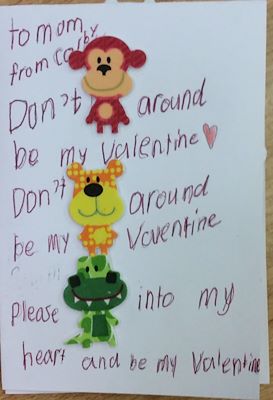 to mom
from Corby
Don't around
be my Valentine
Don't around
be my Vaventine
Please into my
heart and be my Valentine